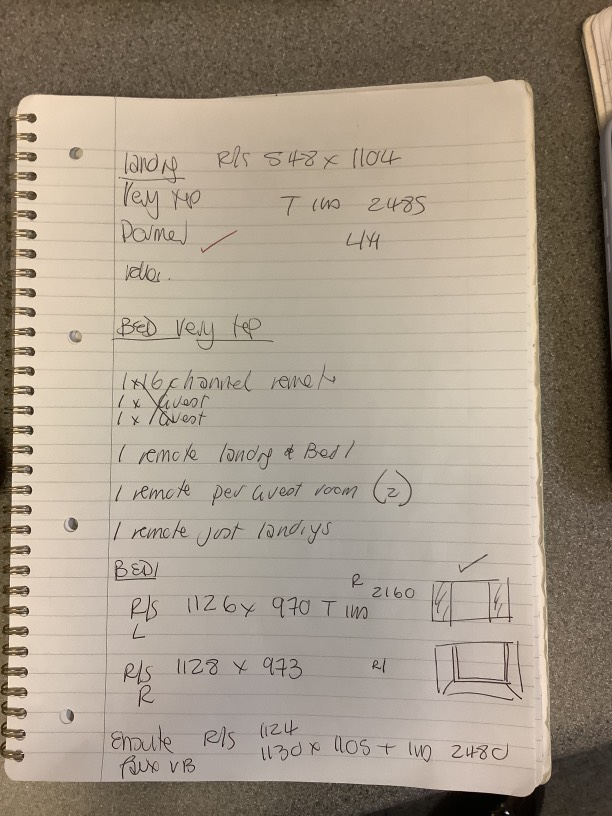 landry R/S 548 x 1104
Very top T 1no 2485
Dormer
roller.
BED Very top
1 x 16 channel remote
1 x Guest
1 x Guest
1 remote landry & Bed 1
1 remote per Guest room (2)
1 remote just landrys
BED 1
R/S 1126 x 970 T 1no R 2160
L
R/S 1128 x 973 R/
R
Ensuite R/S 1124
1130 x 1105 T 1no 2480
faux VB